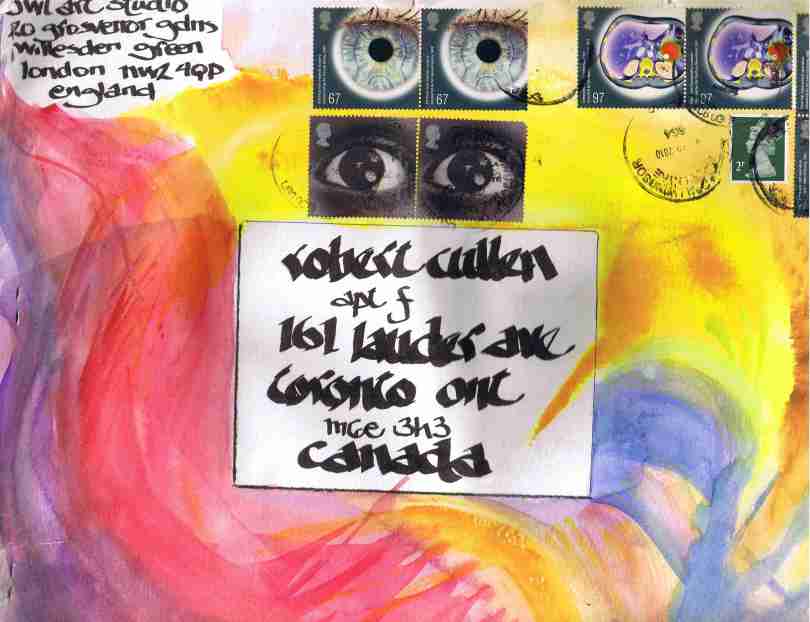 JWL art studio
20 grosvenor gdns
willesden green
london nw2 4QP
england
67
67
97
97
2ᴾ
2010
WINDSOR
robert cullen
apt f
161 lauder ave
toronto ont
m6e 3h3
canada